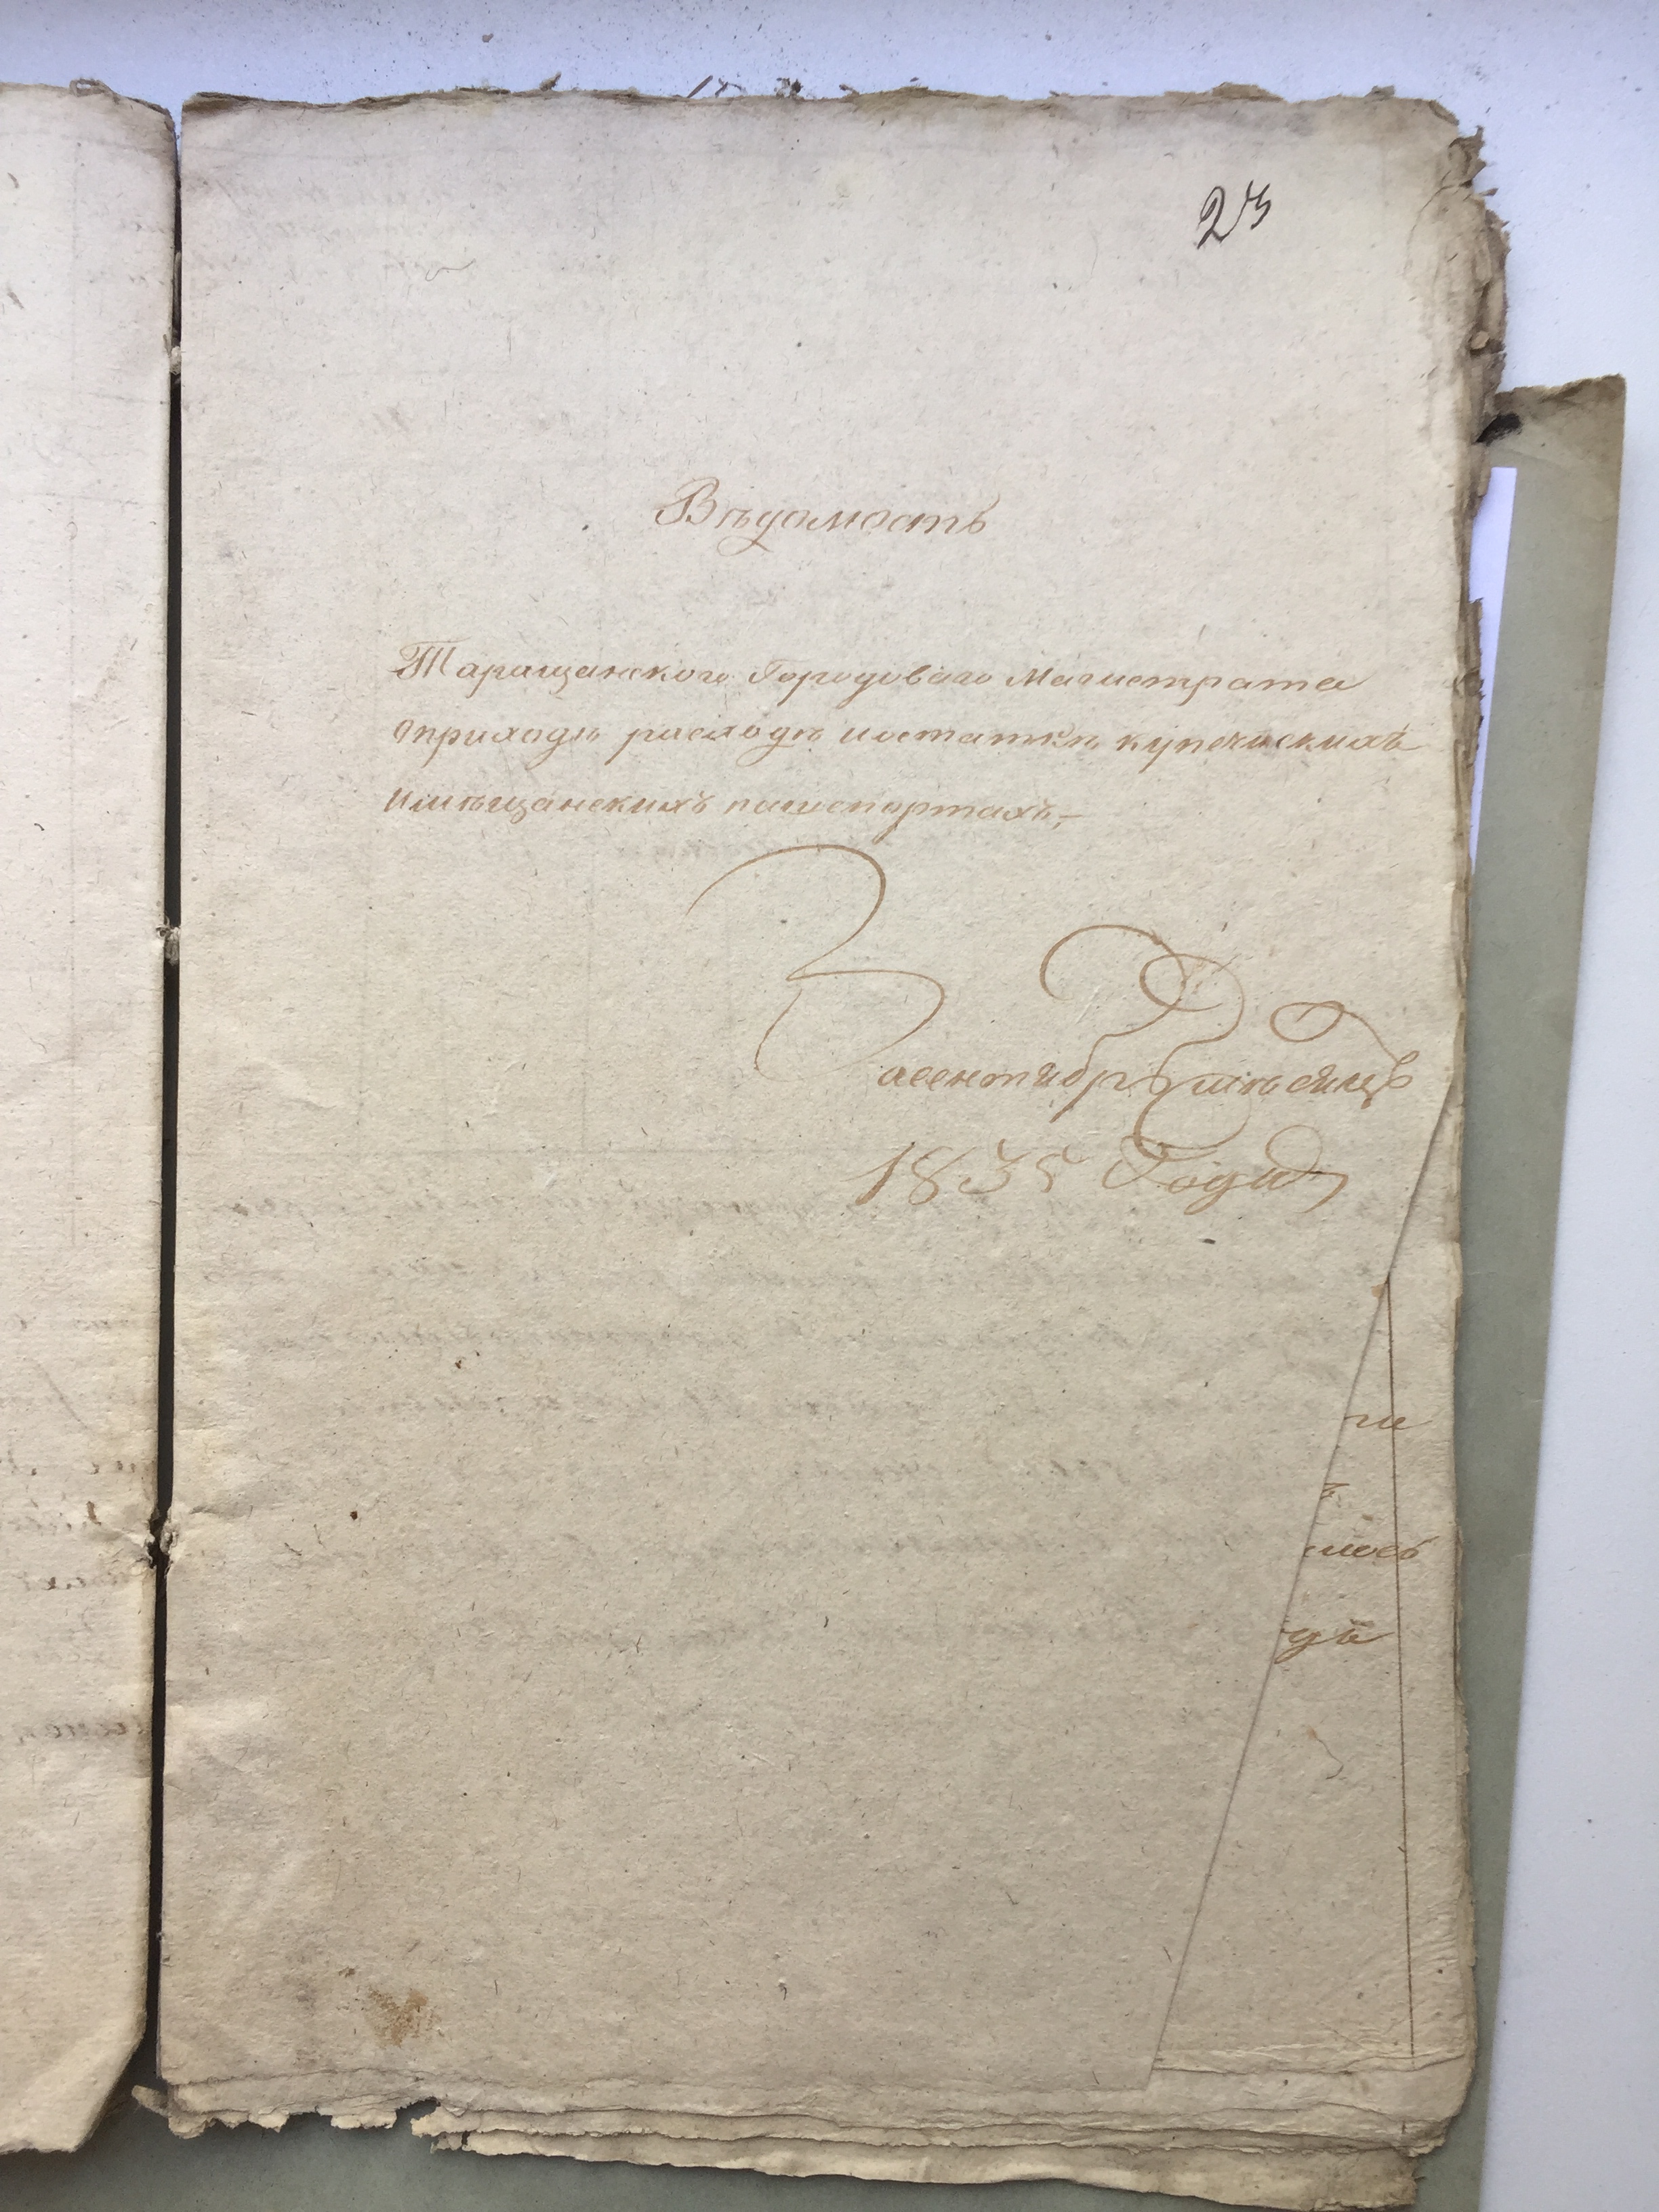 23
Вѣдомость
Таращанского Городоваго Магистрата
оприходѣ расходѣ иостаткѣ купеческихъ
имѣщанскихъ пашепортахъ,-
Засентябрь мѣсяцъ
1835 Года
ги
ъ
лось
дѣ